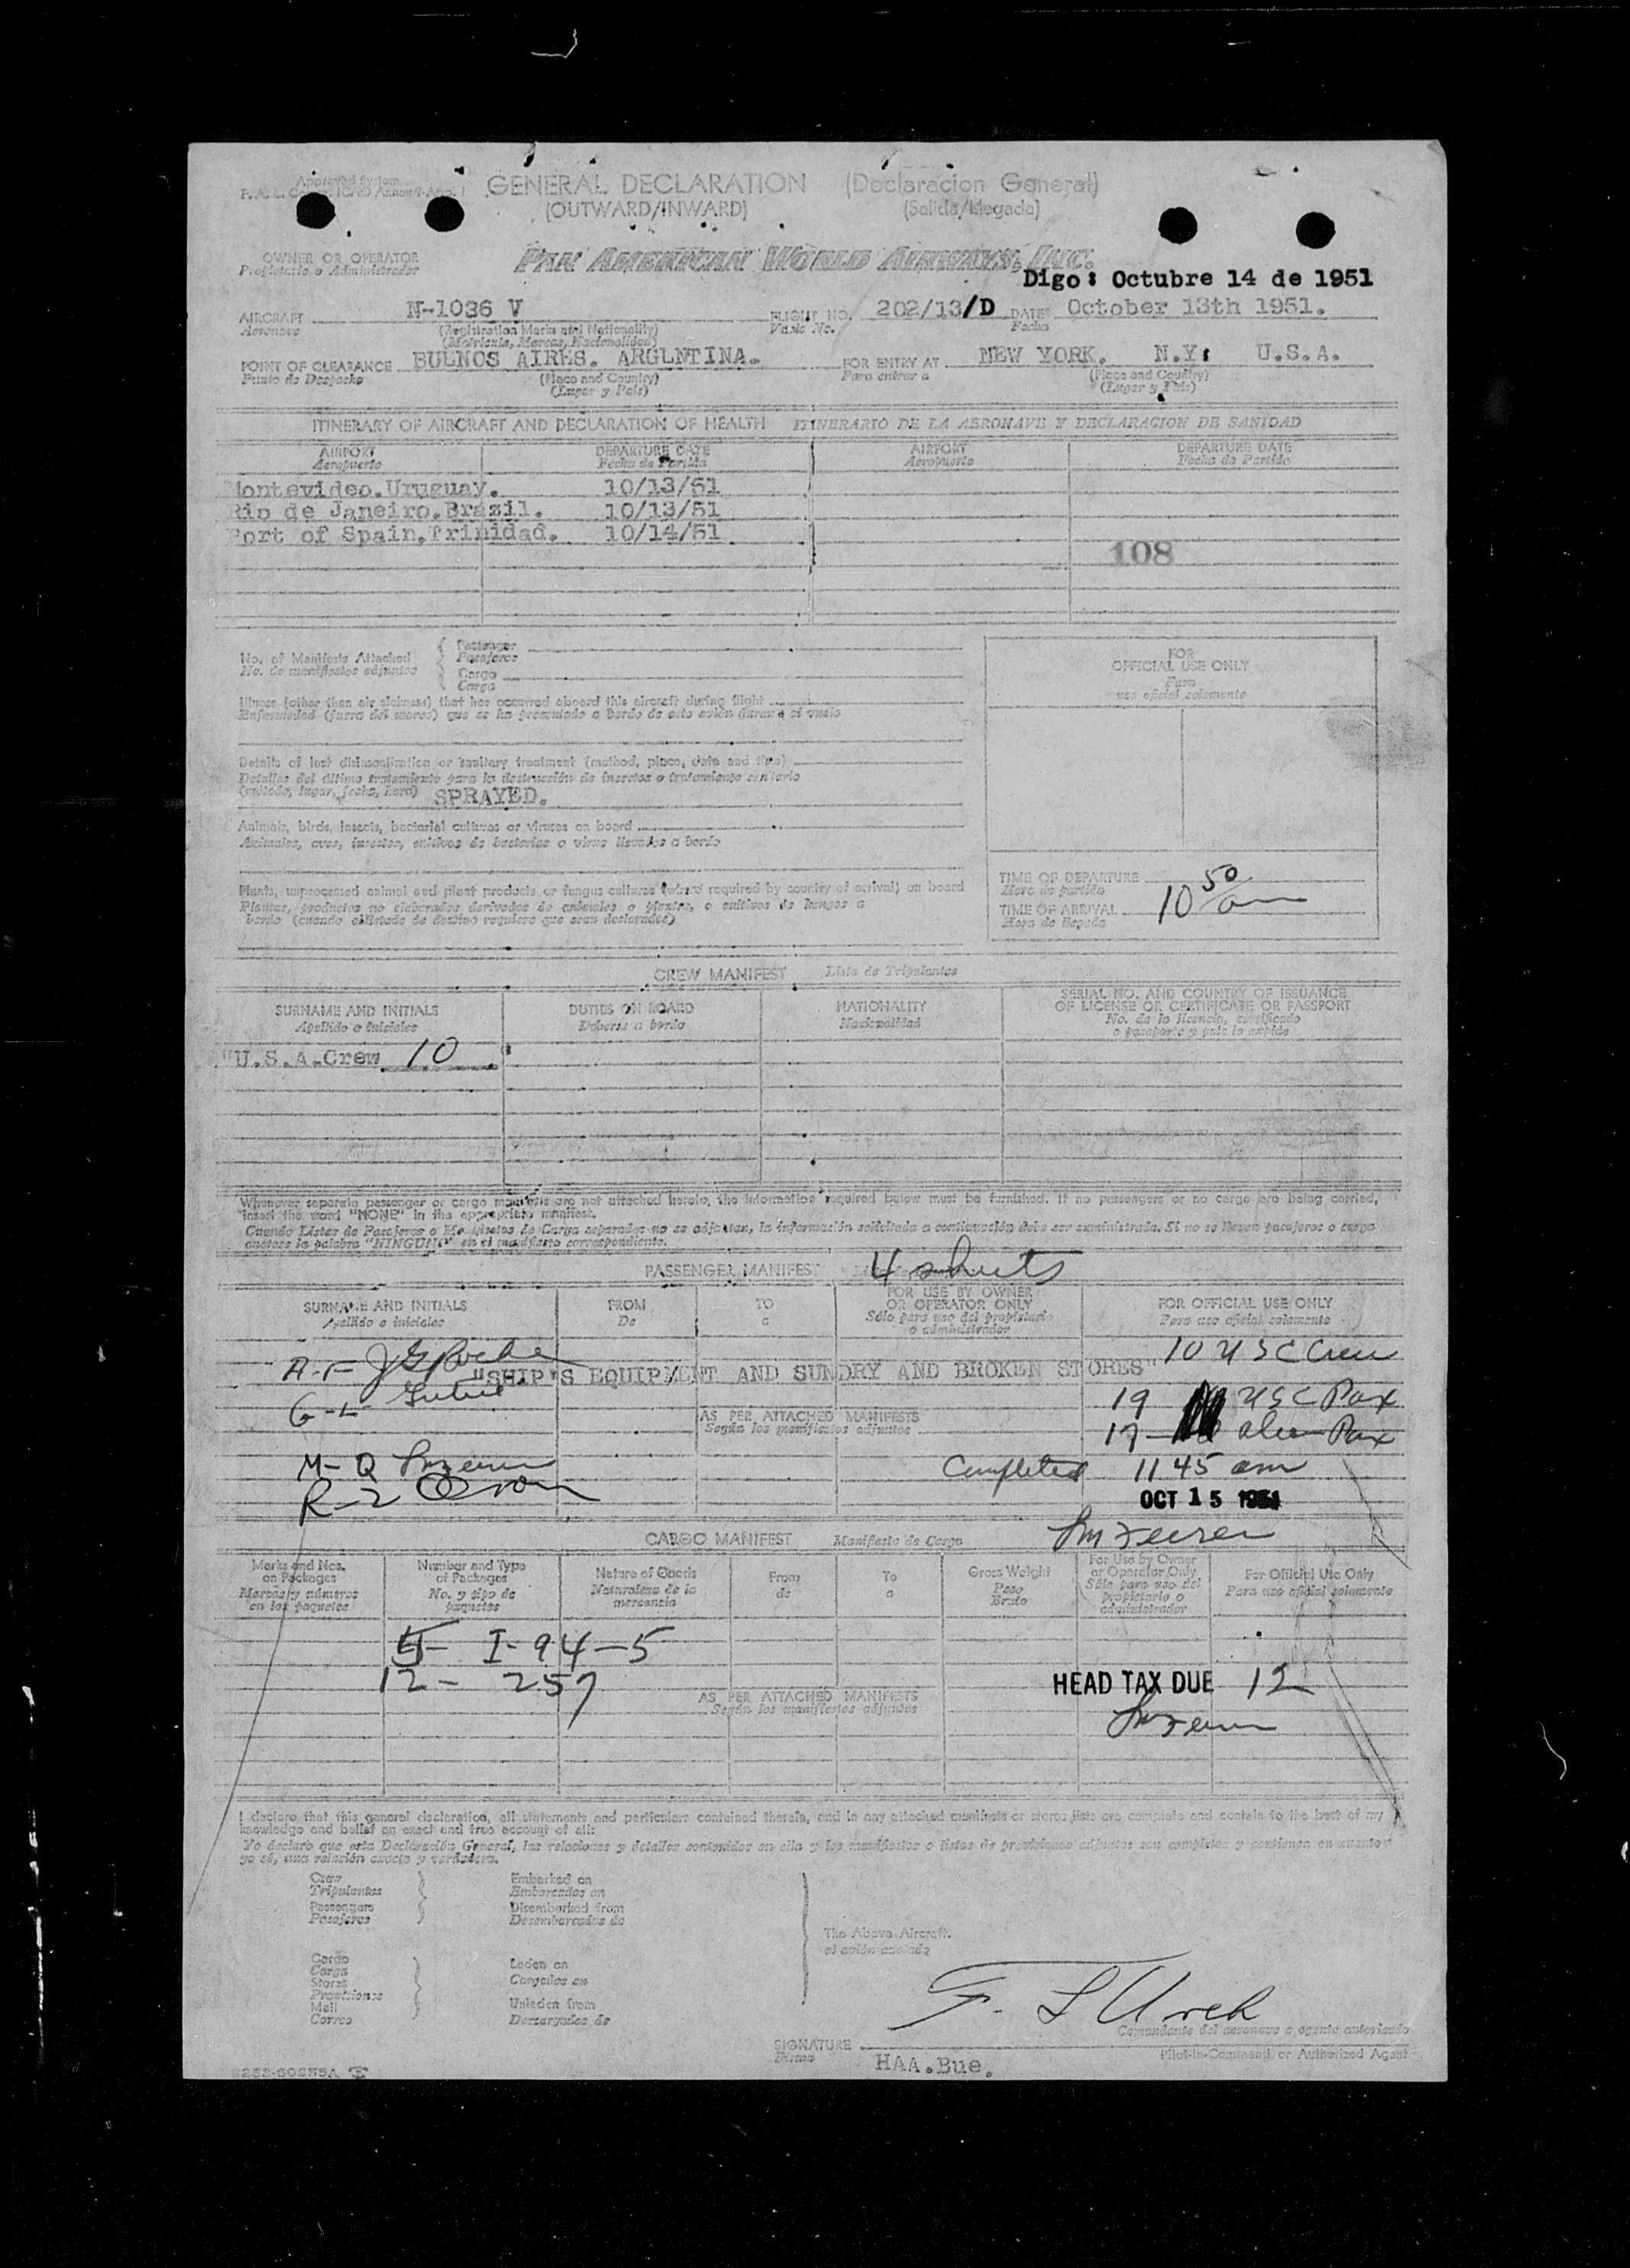 GENERAL DECLARATION (Declaracion General)
(OUTWARD/INWARD) (Salida/Llegada)
OWNER OR OPERATOR
Propietario o Administrador
PAN AMERICAN WORLD AIRWAYS, INC.
Digo: Octubre 14 de 1951
AIRCRAFT N-1036 V FLIGHT NO. 202/13/D DATE October 13th 1951.
Aeronave (Registration Marks and Nationality) Fecha
(Matricula, Marcas, Nacionalidad)
POINT OF CLEARANCE BUENOS AIRES. ARGENTINA. FOR ENTRY AT NEW YORK. N.Y. U.S.A.
Punto de Despacho (Place and Country) Para entrar a (Place and Country)
(Lugar y Pais) (Lugar y Pais)
ITINERARY OF AIRCRAFT AND DECLARATION OF HEALTH ITINERARIO DE LA AERONAVE Y DECLARACION DE SANIDAD
AIRPORT DEPARTURE DATE AIRPORT DEPARTURE DATE
Aeropuerto Fecha de Partida Aeropuerto Fecha de Partida
Montevideo.Uruguay. 10/13/51
Rio de Janeiro.Brazil. 10/13/51
Port of Spain,Trinidad. 10/14/51
108
No. of Manifests Attached
No. de manifiestos adjuntos
Passenger
Pasajeros
Cargo
Carga
FOR
OFFICIAL USE ONLY
Para
uso oficial solamente
Illness (other than air sickness) that has occurred aboard this aircraft during flight
Enfermedad (fuera del mareo) que se ha presentado a bordo de este avión durante el vuelo
Details of last disinsectization or sanitary treatment (method, place, date and time)
Detalles del último tratamiento para la destrucción de insectos o tratamiento sanitario
(método, lugar, fecha, hora) SPRAYED.
Animals, birds, insects, bacterial cultures or viruses on board
Animales, aves, insectos, cultivos de bacterias o virus llevados a bordo
Plants, unprocessed animal and plant products or fungus cultures (where required by country of arrival) on board
Plantas, productos no elaborados derivados de animales o plantas, o cultivos de hongos a
bordo (cuando el Estado de destino requiere que sean declarados)
TIME OF DEPARTURE
Hora de partida
TIME OF ARRIVAL 10 50 am
Hora de llegada
CREW MANIFEST Lista de Tripulantes
SURNAME AND INITIALS DUTIES ON BOARD NATIONALITY SERIAL NO. AND COUNTRY OF ISSUANCE
OF LICENSE OR CERTIFICATE OR PASSPORT
Apellido e iniciales Deberes a bordo Nacionalidad No. de la licencia, certificado
o pasaporte y país lo expide
"U.S.A.Crew 10
Whenever separate passenger or cargo manifests are not attached hereto, the information required below must be furnished. If no passengers or no cargo are being carried,
insert the word "NONE" in the appropriate manifest.
Cuando Listas de Pasajeros o Manifiestos de Carga separados no se adjuntan, la información solicitada a continuación debe ser suministrada. Si no se llevan pasajeros o carga
anótese la palabra "NINGUNO" en el manifiesto correspondiente.
PASSENGER MANIFEST 4 sheets
SURNAME AND INITIALS FROM TO FOR USE BY OWNER
OR OPERATOR ONLY FOR OFFICIAL USE ONLY
Apellido e iniciales De a Sólo para uso del propietario
o administrador Para uso oficial solamente
A-F
10 USC Crew
"SHIP'S EQUIPMENT AND SUNDRY AND BROKEN STORES"
G-L
19 USC Pax
AS PER ATTACHED MANIFESTS
Según los manifiestos adjuntos
17 alien Pax
M-Q
Completed 11 45 am
R-Z
OCT 15 1951
CARGO MANIFEST Manifiesto de Carga
Marks and Nos.
on Packages
Marcas y números
en los paquetes
Number and Type
of Packages
No. y tipo de
paquetes
Nature of Goods
Naturaleza de la
mercancía
From
de
To
a
Gross Weight
Peso
Bruto
For Use by Owner
or Operator Only
Sólo para uso del
propietario o
administrador
For Official Use Only
Para uso oficial solamente
5- I-94-5
12- 257
HEAD TAX DUE 12
AS PER ATTACHED MANIFESTS
Según los manifiestos adjuntos
I declare that this general declaration, all statements and particulars contained therein, and in any attached manifests or stores lists are complete and contain to the best of my
knowledge and belief an exact and true account of all:
Yo declaro que esta Declaración General, las relaciones y detalles contenidos en ella y los manifiestos o listas de provisiones adjuntas son completos y contienen en cuanto
yo sé, una relación exacta y verdadera.
Crew
Tripulantes
Passengers
Pasajeros
Embarked on
Embarcados en
Disembarked from
Desembarcados de
The Above Aircraft.
el avión anotado
Cargo
Carga
Stores
Provisiones
Mail
Correo
Laden on
Cargados en
Unladen from
Descargados de
Comandante del aeronave o agente autorizado
SIGNATURE Pilot-in-Command or Authorized Agent
Firma HAA.Bue.